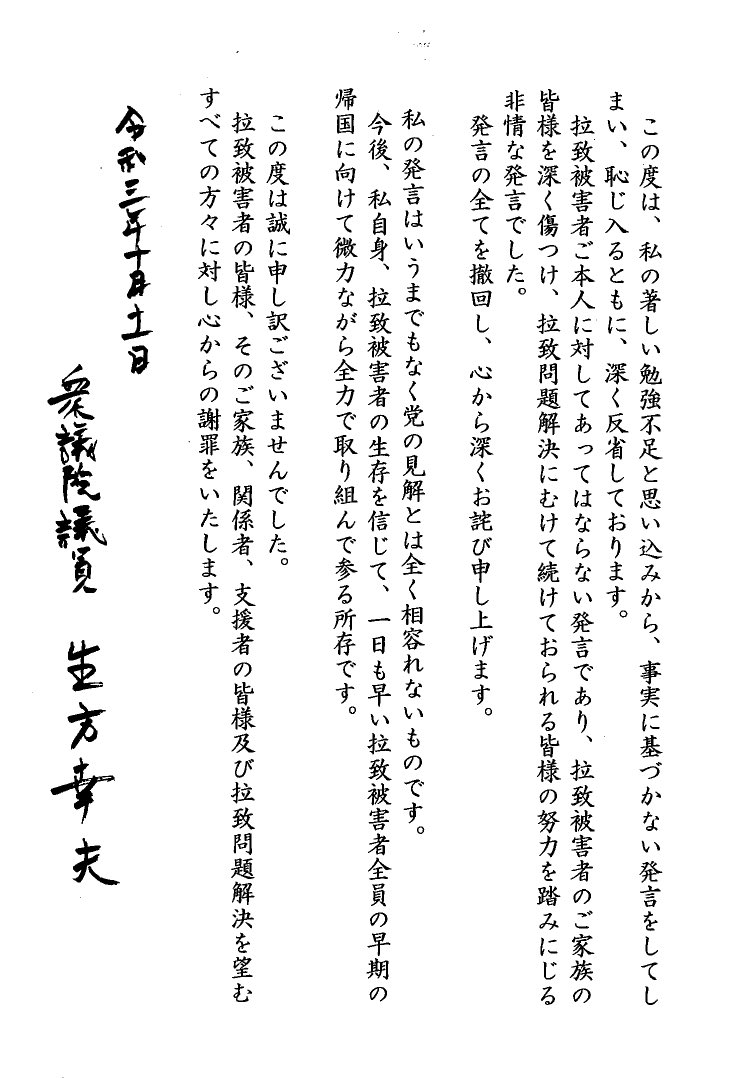 この度は、私の著しい勉強不足と思い込みから、事実に基づかない発言をしてし
まい、恥じ入るともに、深く反省しております。
拉致被害者ご本人に対してあってはならない発言であり、拉致被害者のご家族の
皆様を深く傷つけ、拉致問題解決にむけて続けておられる皆様の努力を踏みにじる
非情な発言でした。
発言の全てを撤回し、心から深くお詫び申し上げます。
私の発言はいうまでもなく党の見解とは全く相容れないものです。
今後、私自身、拉致被害者の生存を信じて、一日も早い拉致被害者全員の早期の
帰国に向けて微力ながら全力で取り組んで参る所存です。
この度は誠に申し訳ございませんでした。
拉致被害者の皆様、そのご家族、関係者、支援者の皆様及び拉致問題解決を望む
すべての方々に対し心からの謝罪をいたします。
令和三年十月十一日
衆議院議員 生方幸夫